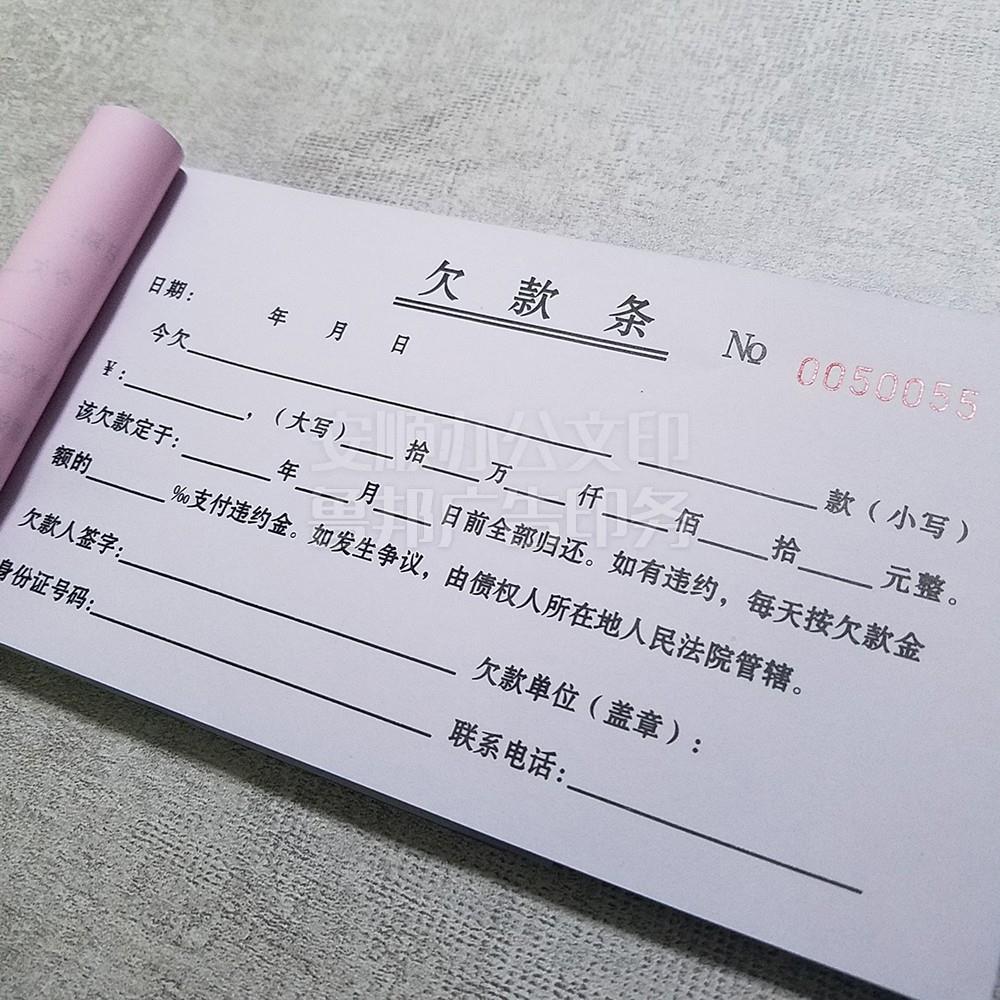 欠款条
No 0050055
日期： 年 月 日
今欠__________ __________款（小写）
￥：__________，（大写）____拾____万____仟____佰____拾____元整。
该欠款定于：____年____月____日前全部归还。如有违约，每天按欠款金
额的____‰支付违约金。如发生争议，由债权人所在地人民法院管辖。
欠款人签字：__________ 欠款单位（盖章）：
身份证号码：__________ 联系电话：__________
安顺办公文印
鲁邦广告印务